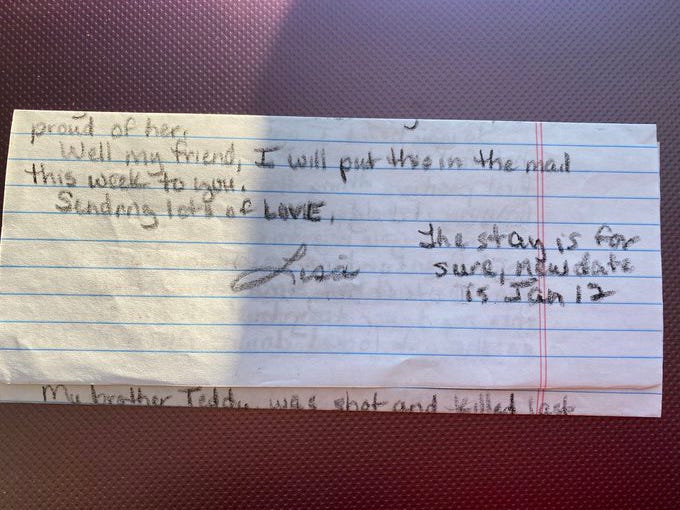 proud of her.
Well my friend, I will put this in the mail
this week to you.
Sending lots of LOVE,
Lisa
The stay is for
sure, new date
is Jan 12
My brother Teddy was shot and killed last